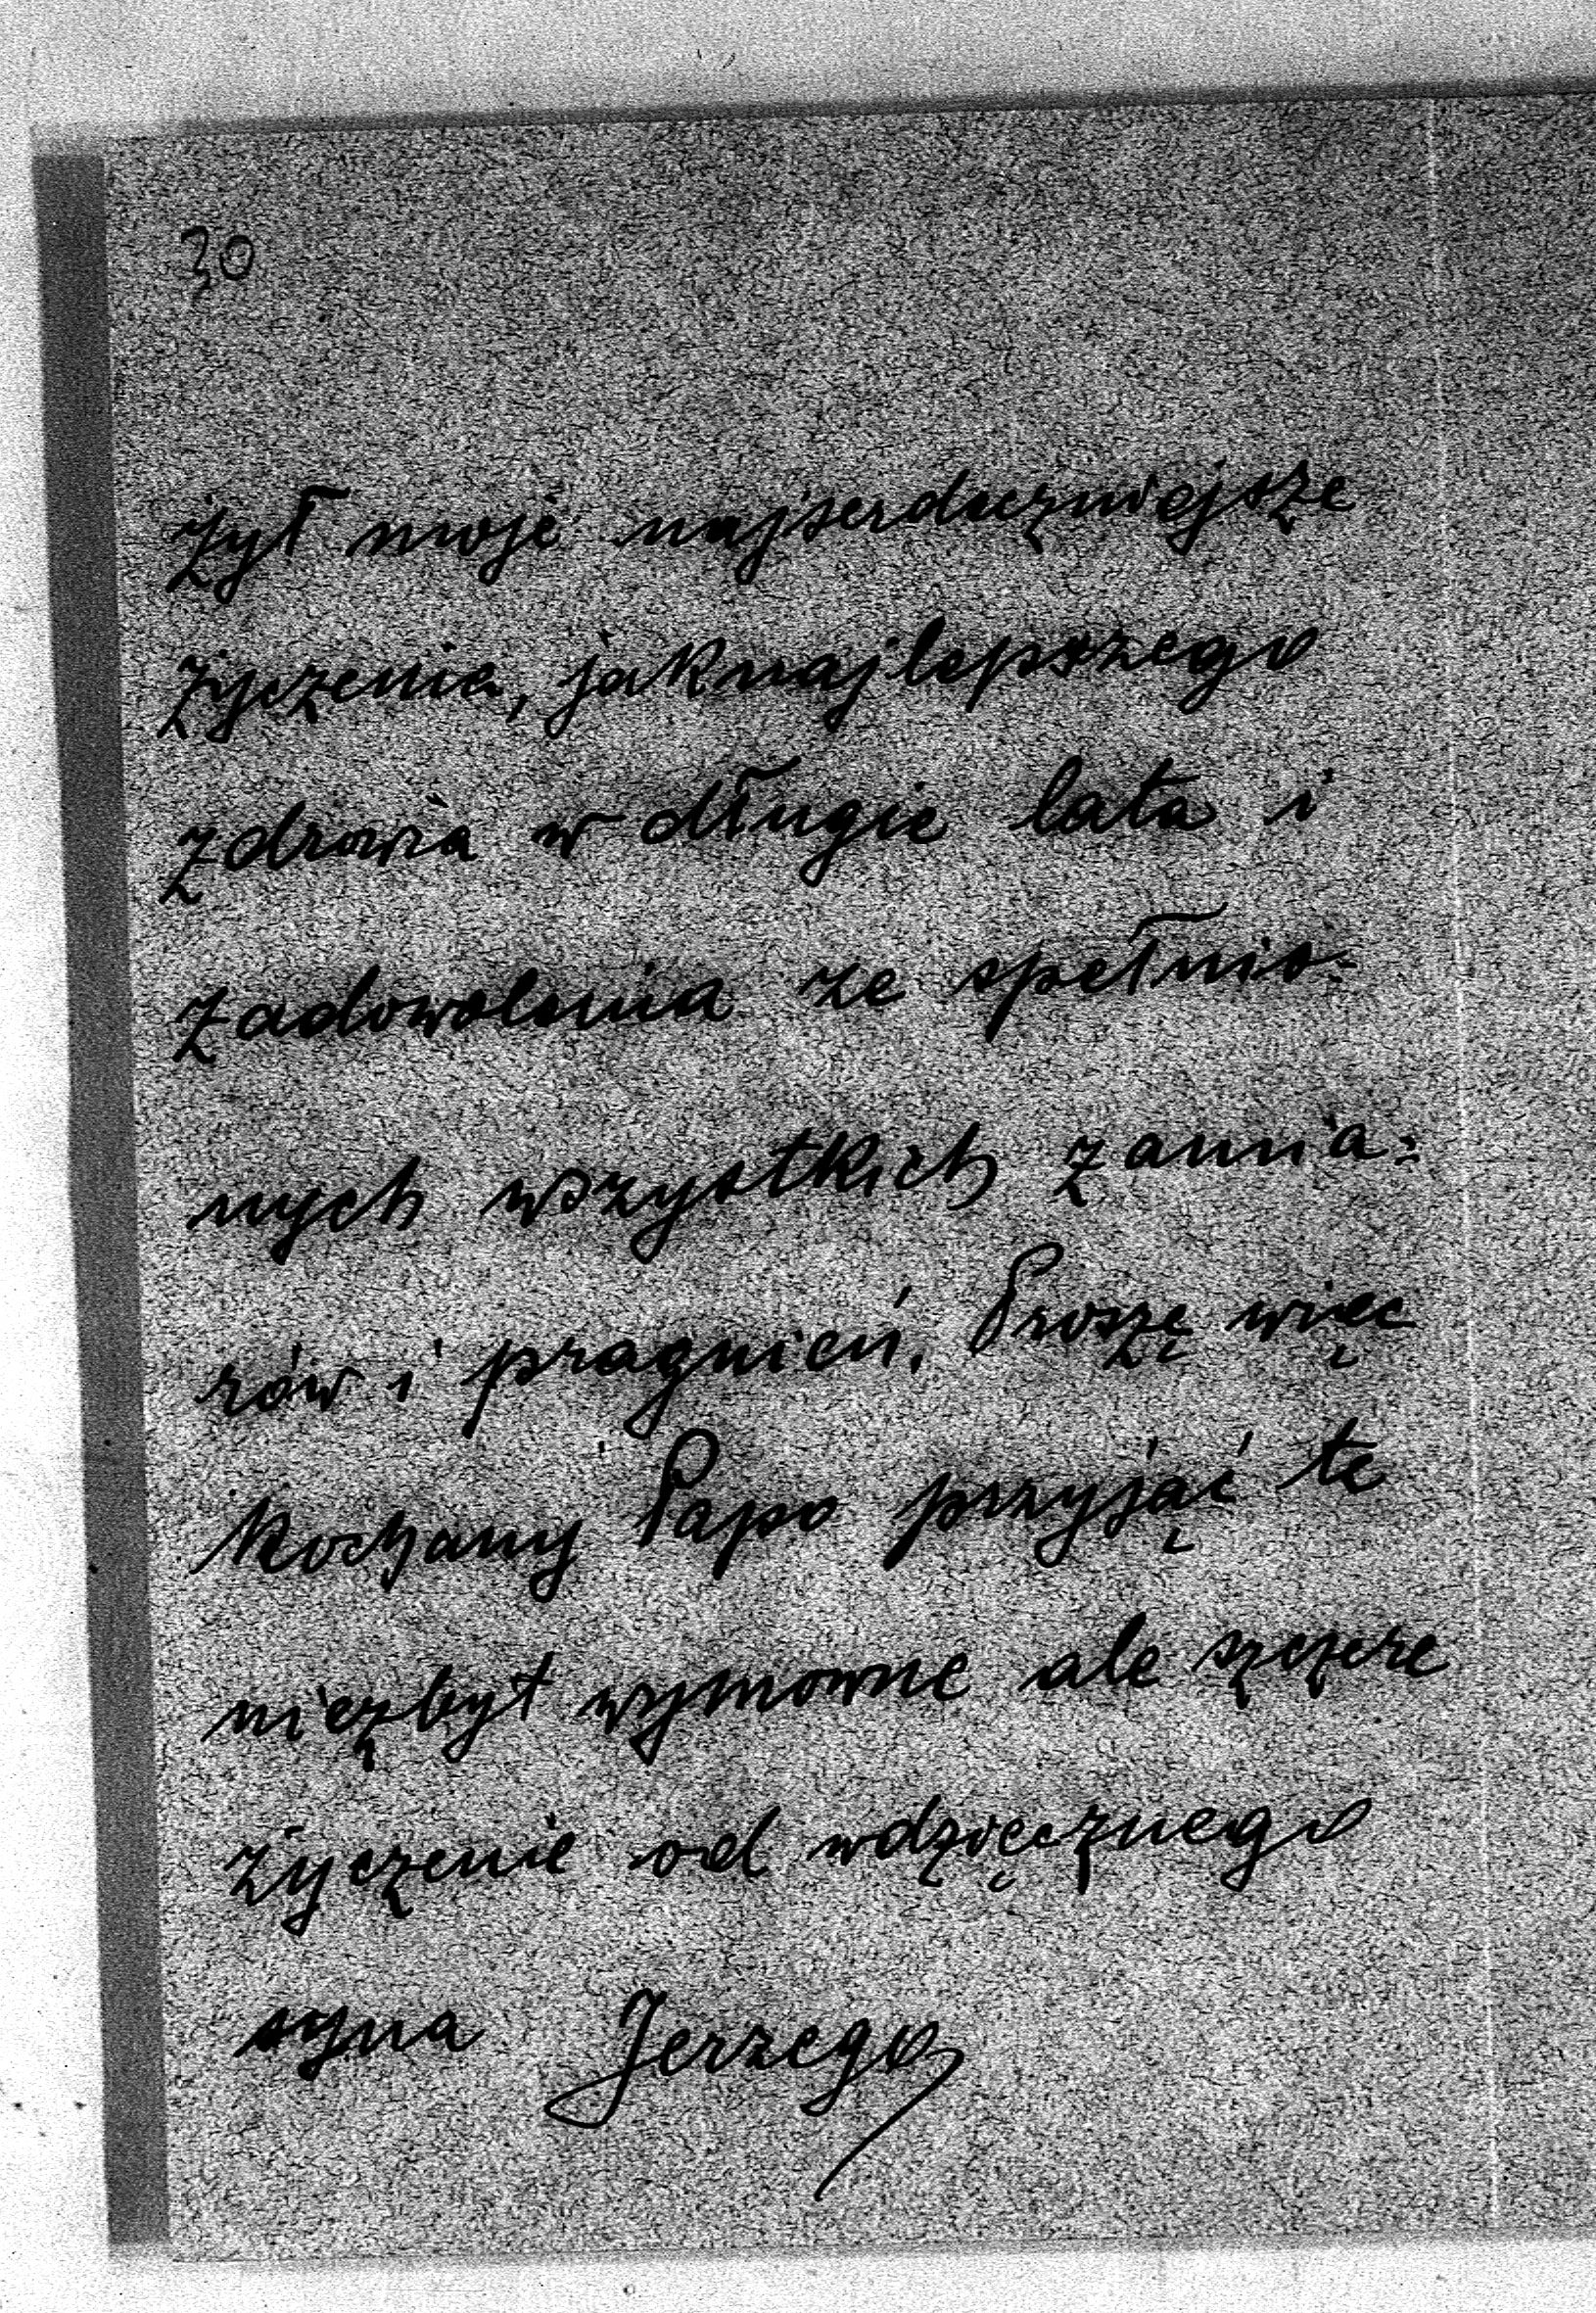 30
żył moje najserdeczniejsze
życzenia, jaknajlepszego
zdrowia w długie lata i
zadowolenia ze spełnio-
nych wszystkich zamia-
rów i pragnień. Proszę więc
Kochany Papo przyjąć te
niezbyt wymowne ale szczere
życzenie od wdzięcznego
syna Jerzego